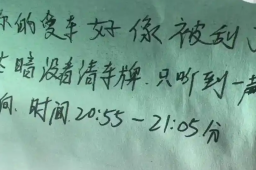 你的复车好像被刮了
暗没看清车牌.只听到一声
响.时间20:55-21:05分